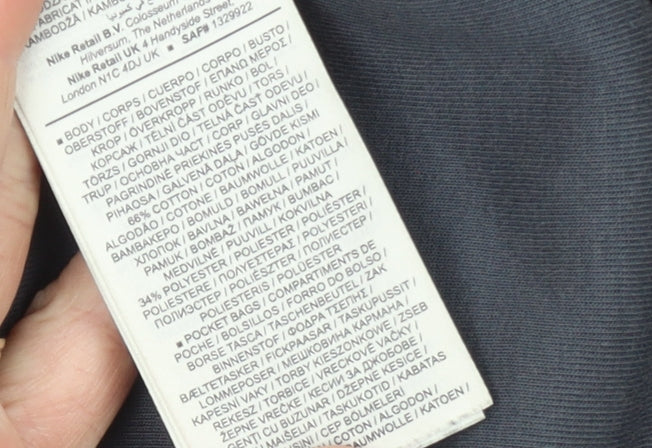 FABRICAT
KAMBODŽA / KAMB
Nike Retail B.V. Colosseum
Hilversum, The Netherlands
Nike Retail UK 4 Handyside Street,
London N1C 4DJ UK ▪ SAF# 1329922
▪ BODY / CORPS / CUERPO / CORPO / BUSTO /
OBERSTOFF / BOVENSTOF / ΕΠΑΝΩ ΜΕΡΟΣ /
KROP / ÖVERKROPP / RUNKO / BOL /
КОРСАЖ / TĚLNÍ ČÁST ODĚVU / TORS /
TÖRZS / GORNJI DIO / TELNÁ ČASŤ ODEVU /
TRUP / ОСНОВНА ЧАСТ / CORP / GLAVNI DEO /
PAGRINDINĖ PRIEKINĖS PUSĖS DALIS /
PIHAOSA / GALVENĀ DAĻA / GÖVDE KISMI
66% COTTON / COTON / ALGODÓN /
ALGODÃO / COTONE / BAUMWOLLE / KATOEN /
ΒΑΜΒΑΚΕΡΟ / BOMULD / BOMULL / PUUVILLA /
ХЛОПОК / BAVLNA / BAWEŁNA / PAMUT /
PAMUK / BOMBAŽ / ПАМУК / BUMBAC /
MEDVILNĖ / PUUVILL / KOKVILNA
34% POLYESTER / POLIÉSTER /
POLIESTERE / ΠΟΛΥΕΣΤΕΡΑΣ / POLYESTERI /
ПОЛИЭСТЕР / POLIÉSZTER / ПОЛИЕСТЕР /
POLIESTERIS / POLÜESTER
▪ POCKET BAGS / COMPARTIMENTS DE
POCHE / BOLSILLOS / FORRO DO BOLSO /
BORSE TASCA / TASCHENBEUTEL / ZAK
BINNENSTOF / ΦΟΔΡΑ ΤΣΕΠΗΣ /
BÆLTETASKER / FICKPÅSAR / TASKUPUSSIT /
LOMMEPOSER / МЕШКОВИНА КАРМАНА /
KAPESNÍ VAKY / TORBY KIESZONKOWE / ZSEB
REKESZ / TORBICE / VRECKOVÉ VACKY /
ŽEPNE VREČKE / КЕСИИ ЗА ДЖОБОВЕ /
GENȚI CU BUZUNAR / DŽEPNE KESICE /
MAIŠELIAI / TASKUKOTID / KABATAS
CEP BÖLMELERİ
COTON / ALGODÓN /
BAUMWOLLE / KATOEN /